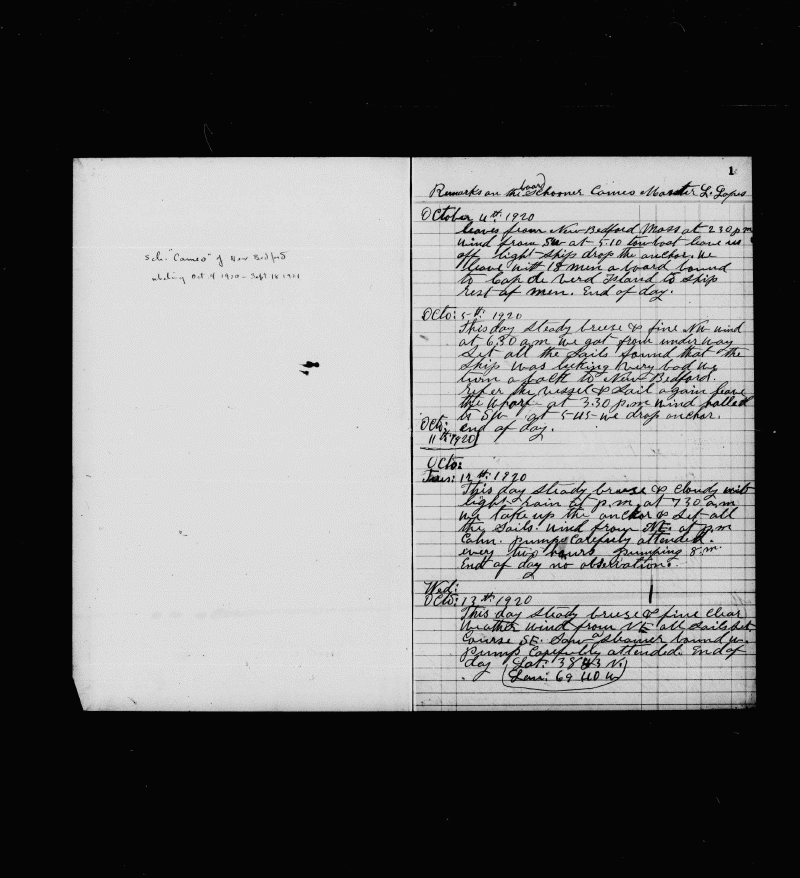 Sch. "Cameo" of New Bedford
whaling Oct 4 1920 - Sept 18 1921
1
board
Remarks on the Schooner Cameo Master L. Lopes
October 4th: 1920
leaves from New Bedford Mass at 2 30 p m
wind from SW at 5.10 towboat leave us
off light ship drop the anchor. we
leave with 18 men aboard bound
to Cap de Verd Island to ship
rest of men. End of day.
Octo: 5th: 1920
This day steady breeze & fine NW wind
at 6.30 a.m we got from under way
set all the sails found that the
ship was leking very bad we
turn a back to New Bedford.
reper the vessel & sail again leave
the wharf at 3.30 p.m wind
SW at 5-45- we drop anchor.
Octo: end of day.
11th 1920
Octo:
Tues: 12th: 1920
This day steady breese & cloudy with
light rain at p.m. at 7 30 a,m
we take up the anchor & set all
the sails. wind from NE at p.m
Calm. pumps carefuly attended.
every two hours pumping 8.m.
End of day no observation.
Wed:
Octo: 13th: 1920
This day steady breese & fine clear
weather wind from NE all sails set
Course SE. Saw a steamer bound w.
Pumps Carefully attended. End of
day Lat: 38 43 N.
Lon: 69 40 w